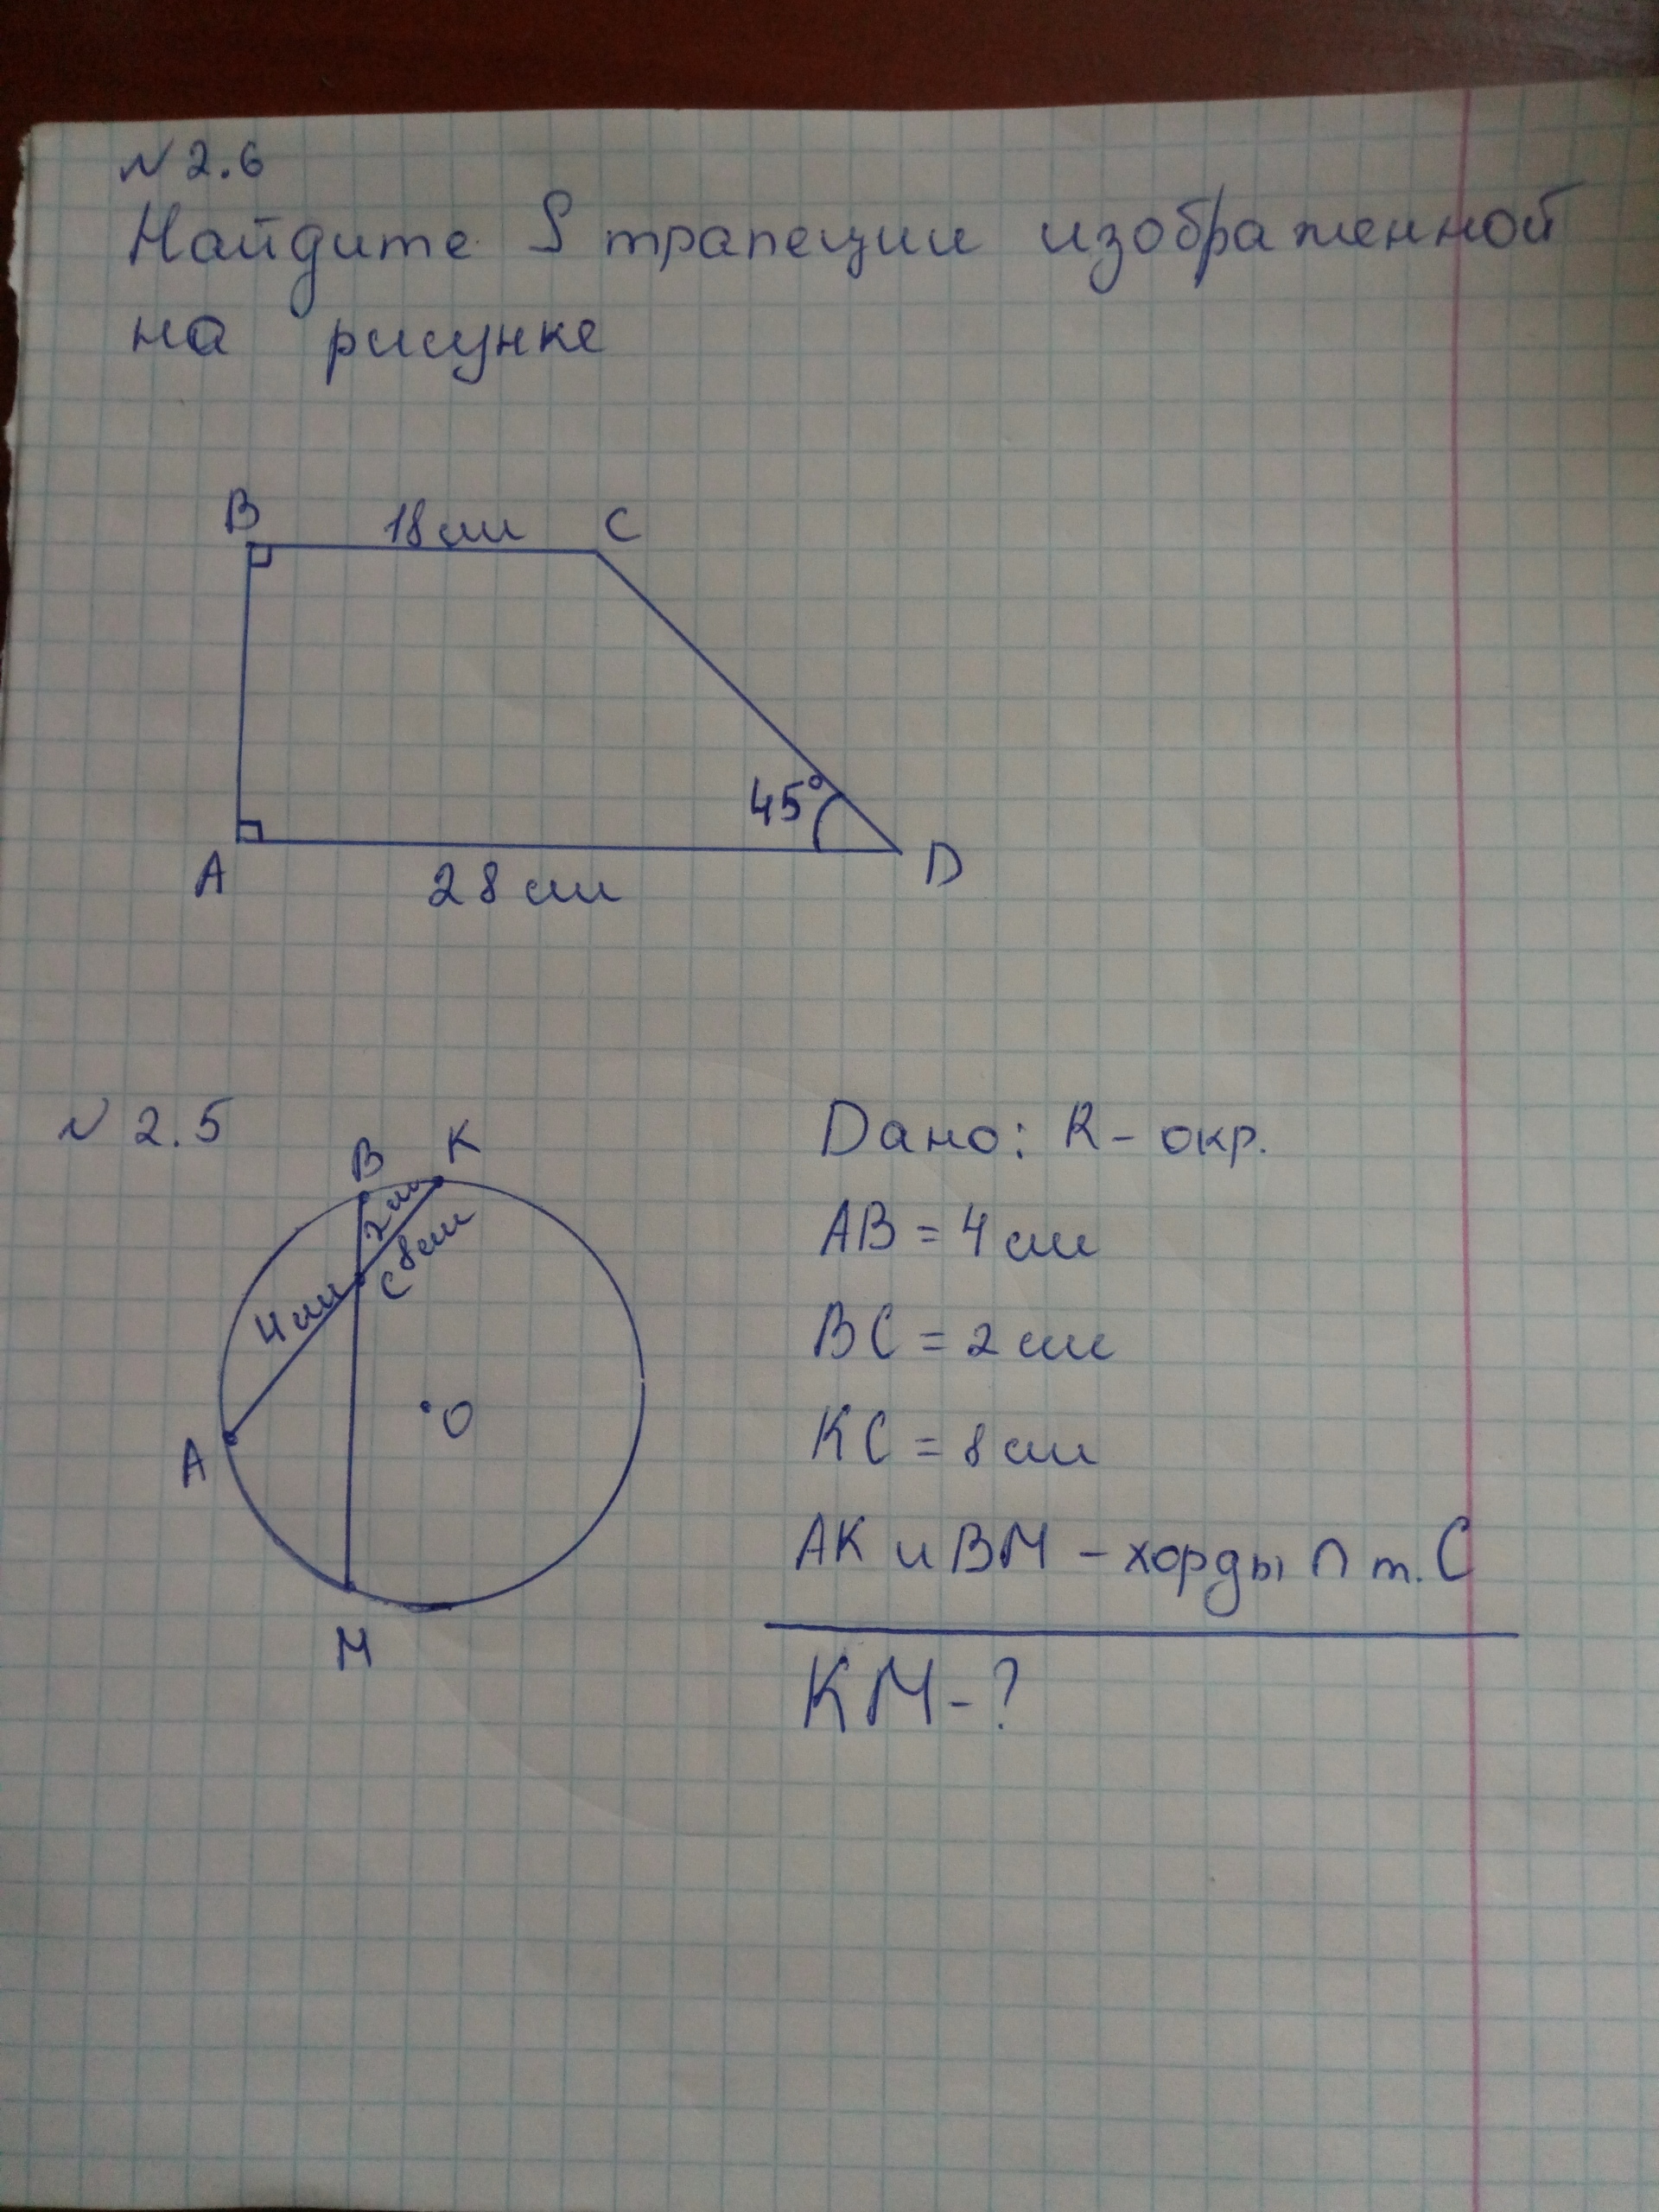 N 2.6
Найдите S трапеции изображенной
на рисунке
B 18 см C
45°
A 28 см D
N 2.5
B K
2 см
8 см
C
4 см
O
A
M
Дано: R - окр.
AB = 4 см
BC = 2 см
KC = 8 см
AK и BM - хорды ∩ т. C
KM - ?